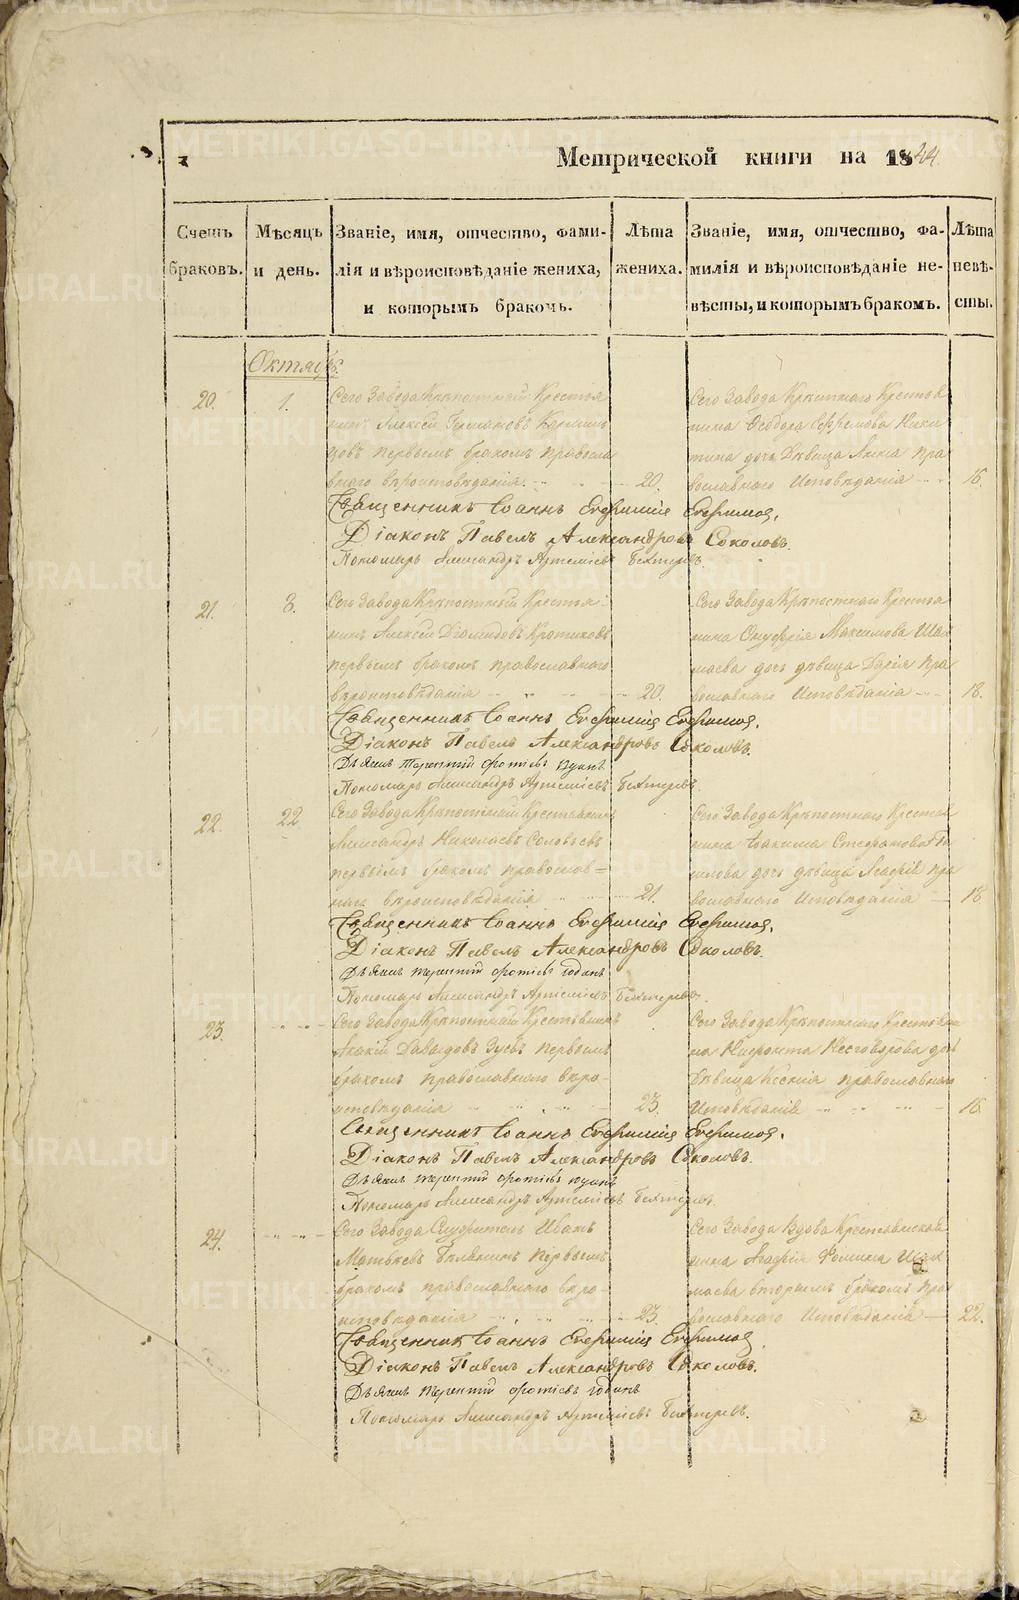 Метрической книги на 1844.
Счетъ браковъ.
Мѣсяцъ и день.
Званіе, имя, отчество, фами-
лія и вѣроисповѣданіе жениха,
и которымъ бракомъ.
Лѣта жениха.
Званіе, имя, отчество, фа-
милія и вѣроисповѣданіе не-
вѣсты, и которымъ бракомъ.
Лѣта невѣ-
сты.
Октябрь
20. 1.
Сего Завода Крѣпостный Крестья
нинъ Алексѣй
цовъ первымъ бракомъ правосла
внаго вѣроисповѣданія. 20.
Сего Завода Крѣпостнаго Крестья
нина Ѳеодора Ефремова Ники
тина дочь дѣвица Анна пра
вославнаго Исповѣданія 16.
Священникъ Іоаннъ Евфиміевъ Евфимовъ.
Діаконъ Павелъ Александровъ Соколовъ.
Пономарь Александръ Артеміевъ Бехтеревъ.
21. 3.
Сего Завода Крѣпостный Крестья
нинъ Алексѣй Діомидовъ Кротиковъ
первымъ бракомъ православнаго
вѣроисповѣданія 20.
Сего Завода Крѣпостнаго Крестья
нина Онуфрія Максимова
маева дочь дѣвица Дарія пра
вославнаго Исповѣданія 18.
Священникъ Іоаннъ Евфиміевъ Евфимовъ.
Діаконъ Павелъ Александровъ Соколовъ.
Дьячекъ Терентій Фотіевъ
Пономарь Александръ Артеміевъ Бехтеревъ.
22. 22
Сего Завода Крѣпостный Крестьянинъ
Александръ Николаевъ Соловьевъ
первымъ бракомъ православ=
наго вѣроисповѣданія 21.
Сего Завода Крѣпостнаго Крестья
нина Іоакима Стефанова
милова дочь дѣвица Агафія пра
вославнаго Исповѣданія 18
Священникъ Іоаннъ Евфиміевъ Евфимовъ.
Діаконъ Павелъ Александровъ Соколовъ.
Дьячекъ Терентій Фотіевъ
Пономарь Александръ Артеміевъ Бехтеревъ.
23.
Сего Завода Крѣпостный Крестьянинъ
Акакій Давыдовъ Зуевъ первымъ
бракомъ православнаго вѣро-
исповѣданія 23.
Сего Завода Крѣпостнаго Крестьяни
на дочь
дѣвица Ксенія православнаго
Исповѣданія 16
Священникъ Іоаннъ Евфиміевъ Евфимовъ.
Діаконъ Павелъ Александровъ Соколовъ.
Дьячекъ Терентій Фотіевъ
Пономарь Александръ Артеміевъ Бехтеревъ.
24.
Сего Завода Служитель Иванъ
Матвѣевъ первымъ
бракомъ православнаго вѣро-
исповѣданія 23.
Сего Завода вдова Крестьянская
жена Агафія Фомина
маева вторымъ бракомъ пра
вославнаго Исповѣданія 22.
Священникъ Іоаннъ Евфиміевъ Евфимовъ
Діаконъ Павелъ Александровъ Соколовъ.
Дьячекъ Терентій Фотіевъ
Пономарь Александръ Артеміевъ Бехтеревъ.
METRIKI.GASO-URAL.RU